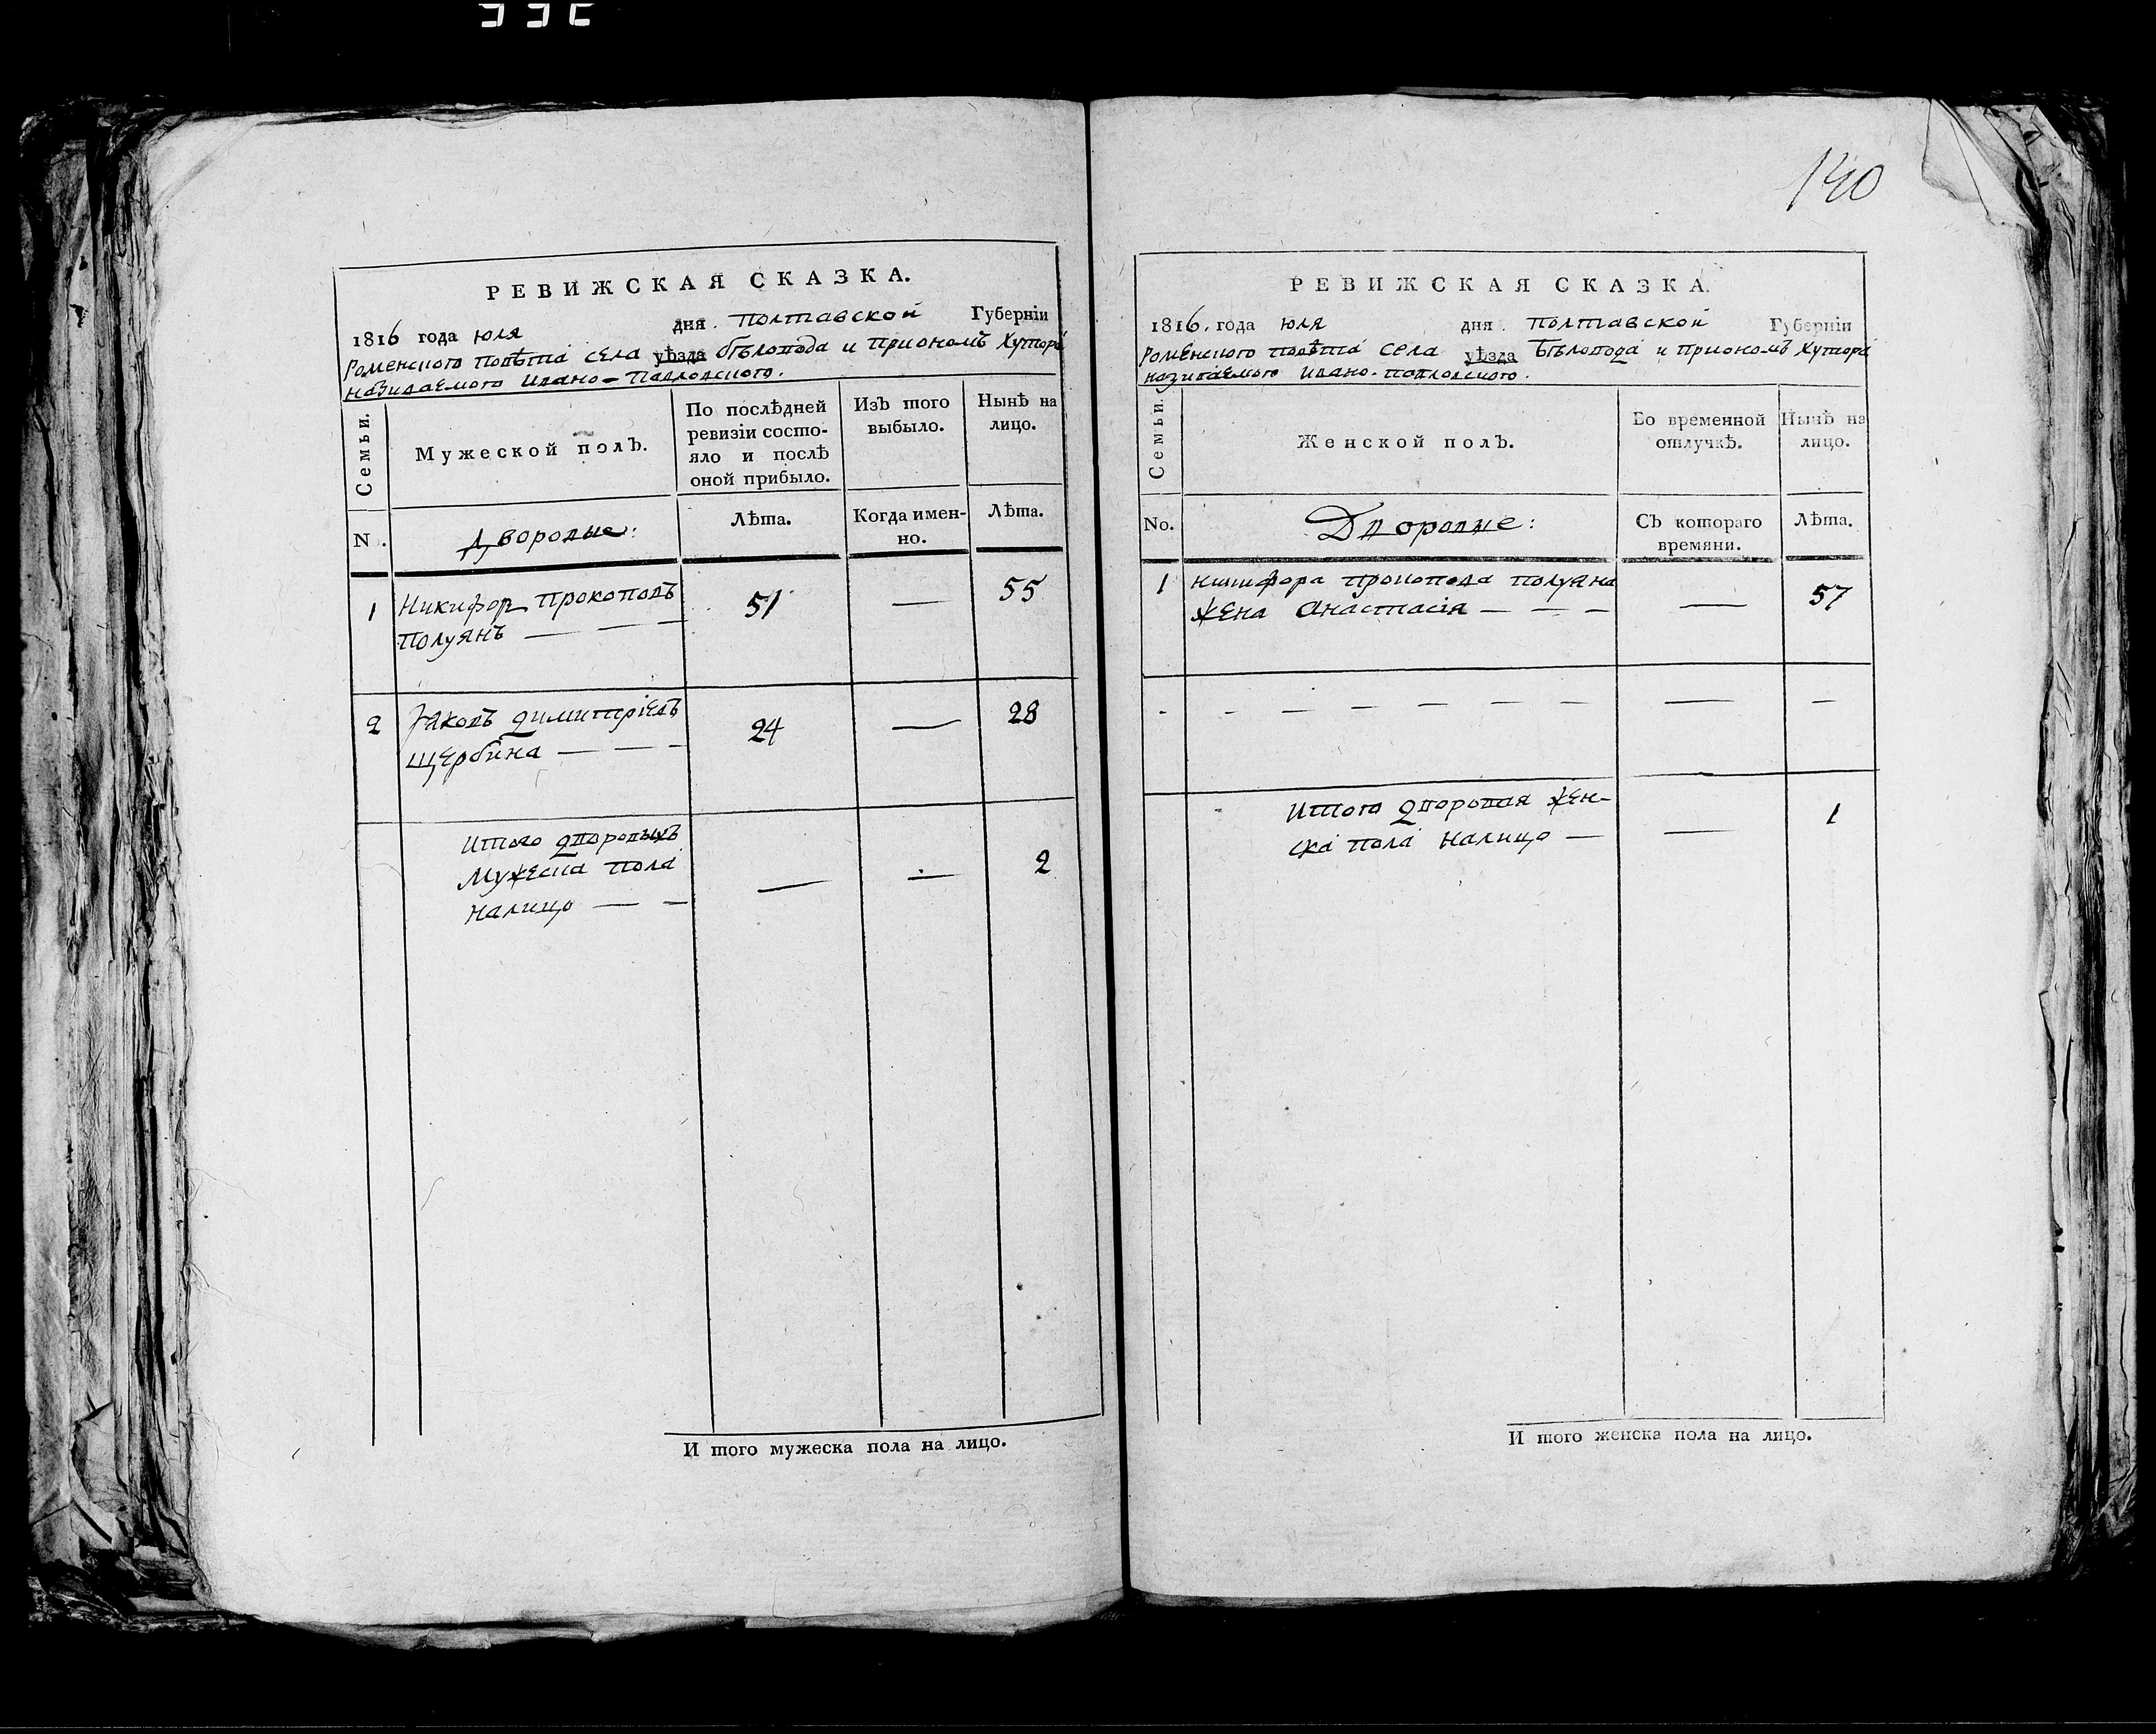 140
РЕВИЖСКАЯ СКАЗКА.
1816 года юля дня Полтавской Губерніи
Роменского Повѣта села уѣзда бѣловода и приономъ хутора
називаемого Ивано-Павловского.
Семьи. Мужеской полъ. По послѣдней ревизіи состояло и послѣ оной прибыло. Изъ того выбыло. Нынѣ на лицо.
N. Дворовые: Лѣта. Когда именно. Лѣта.
1 Никифор Прокоповъ 51 — 55
Полуянъ — — —
2 Яковъ Димитріевъ 24 — 28
Щербина — — —
Итого дворовыхъ
Мужеска пола — — 2
налицо — —
И того мужеска пола на лицо.
РЕВИЖСКАЯ СКАЗКА.
1816. года юля дня Полтавской Губерніи
Роменского повѣта села уѣзда Бѣловода и приономъ хутора
називаемого Ивано-Павловского.
Семьи. Женской полъ. Во временной отлучкѣ. Нынѣ на лицо.
No. Дворовые: Съ котораго времяни. Лѣта.
1 Никифора Прокопова Полуяна
жена Анастасія — — — — 57
- — — — — — — — —
Итого дворовая жен- 1
ска пола налицо — —
И того женска пола на лицо.